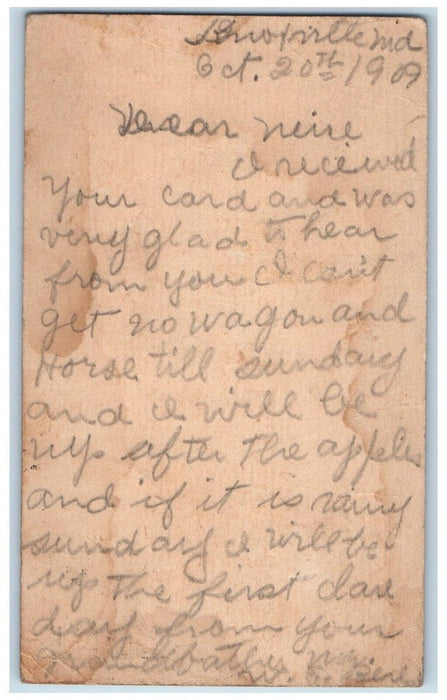 Knoxville Md
Oct. 20th 1909
Dear
I received
Your card and was
very glad to hear
from you I can't
get no wagon and
Horse till sunday
and I will be
up after the apples
and if it is rainy
sunday I will be
up the first clare
day from your
W.